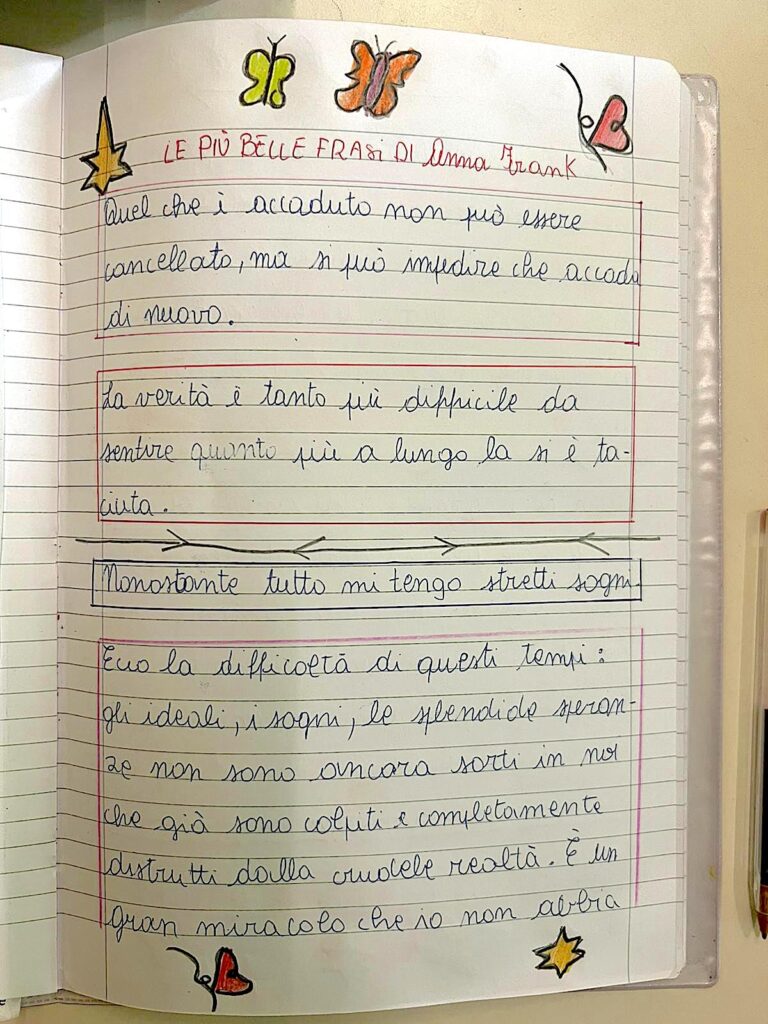 LE PIÙ BELLE FRASI DI Anna Frank
Quel che è accaduto non può essere
cancellato, ma si può impedire che accada
di nuovo.
La verità è tanto più difficile da
sentire quanto più a lungo la si è ta-
ciuta.
Nonostante tutto mi tengo stretti sogni.
Ecco la difficoltà di questi tempi:
gli ideali, i sogni, le splendide speran-
ze non sono ancora sorti in noi
che già sono colpiti e completamente
distrutti dalla crudele realtà. È un
gran miracolo che io non abbia